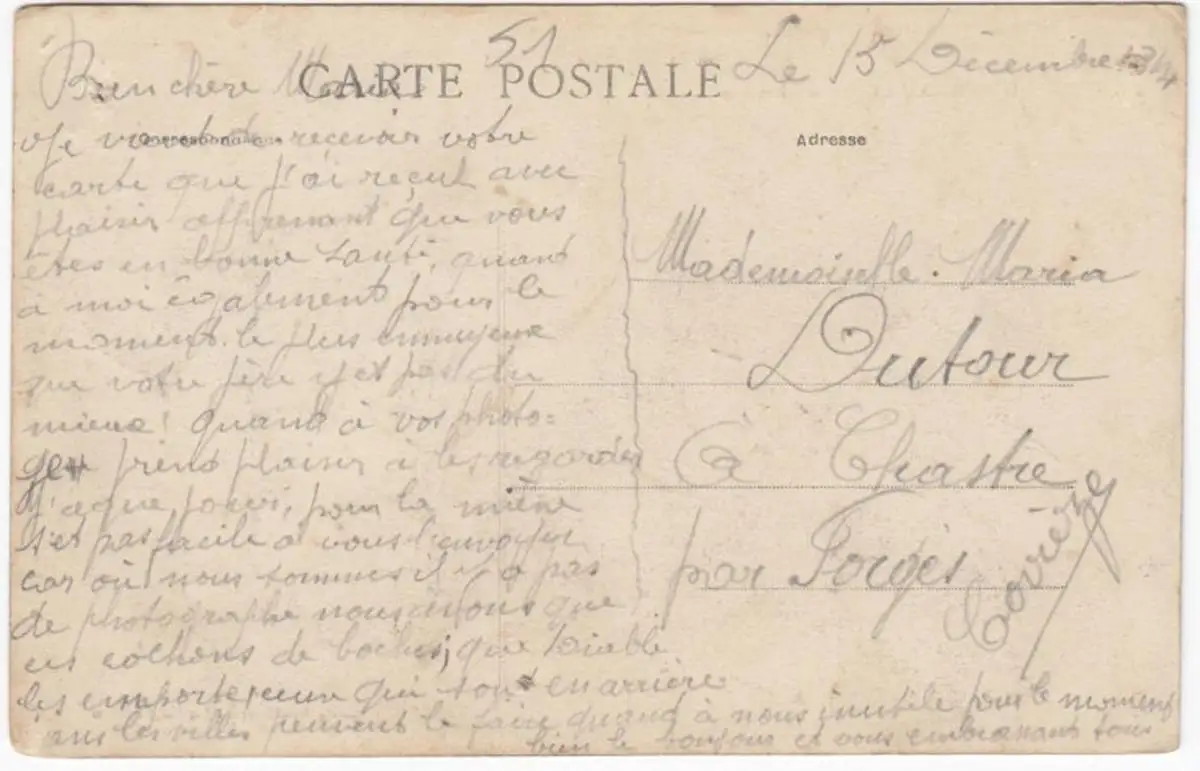 51
Le 15 Décembre 1914
CARTE POSTALE
Bien chère Maria
Correspondance
Je viens de recevoir votre
carte que j'ai reçut avec
plaisir apprenant que vous
êtes en bonne santé, quand
à moi également pour le
moment. le plus ennuyeux
que votre père n'et pas du
mieux! quand à vos photo=
je prend plaisir à les regarder
pour la mienne
s'et pas facile à vous l'envoyer
car où nous sommes il y a pas
de photographe nous avons que
ces cochons de boches, que diable
les emporte, ceux qui sont en arrière
les villes peuvent le faire quand à nous inutile pour le moment
bien le bonjour et vous embrassant tous
Adresse
Mademoiselle. Maria
Dutour
à Chastre
par Forgès
Corrèze